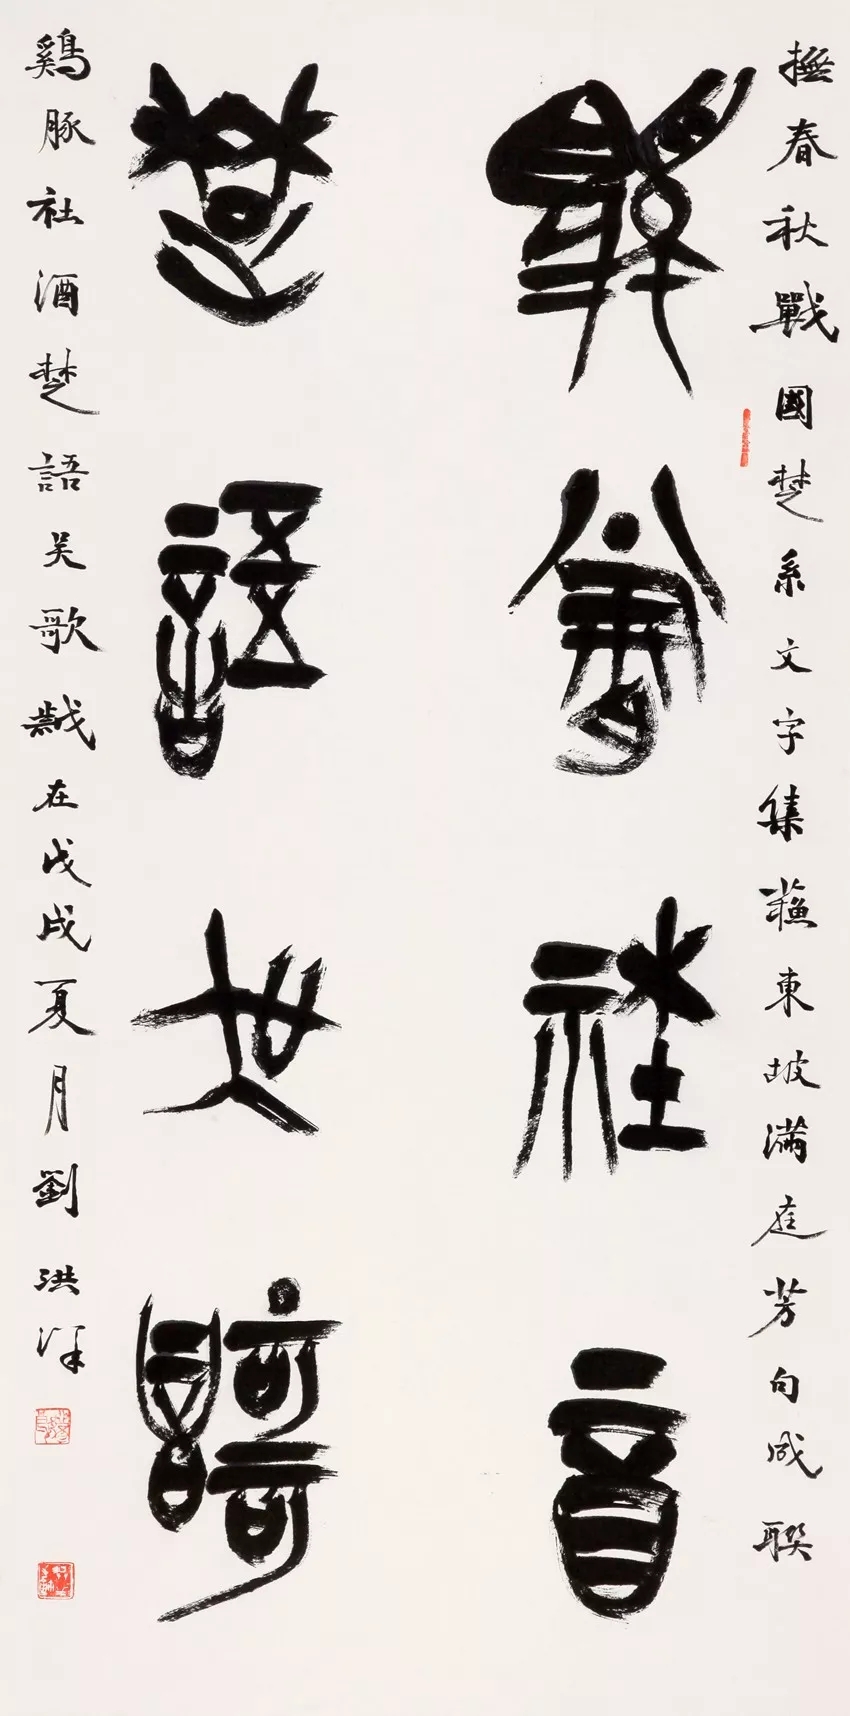 撫春秋戰國楚系文字集蘓東坡滿庭芳句成聯
鷄豚社酉
楚語吴謌
鷄豚社酒楚語吴歌歲在戊戌夏月劉洪洋